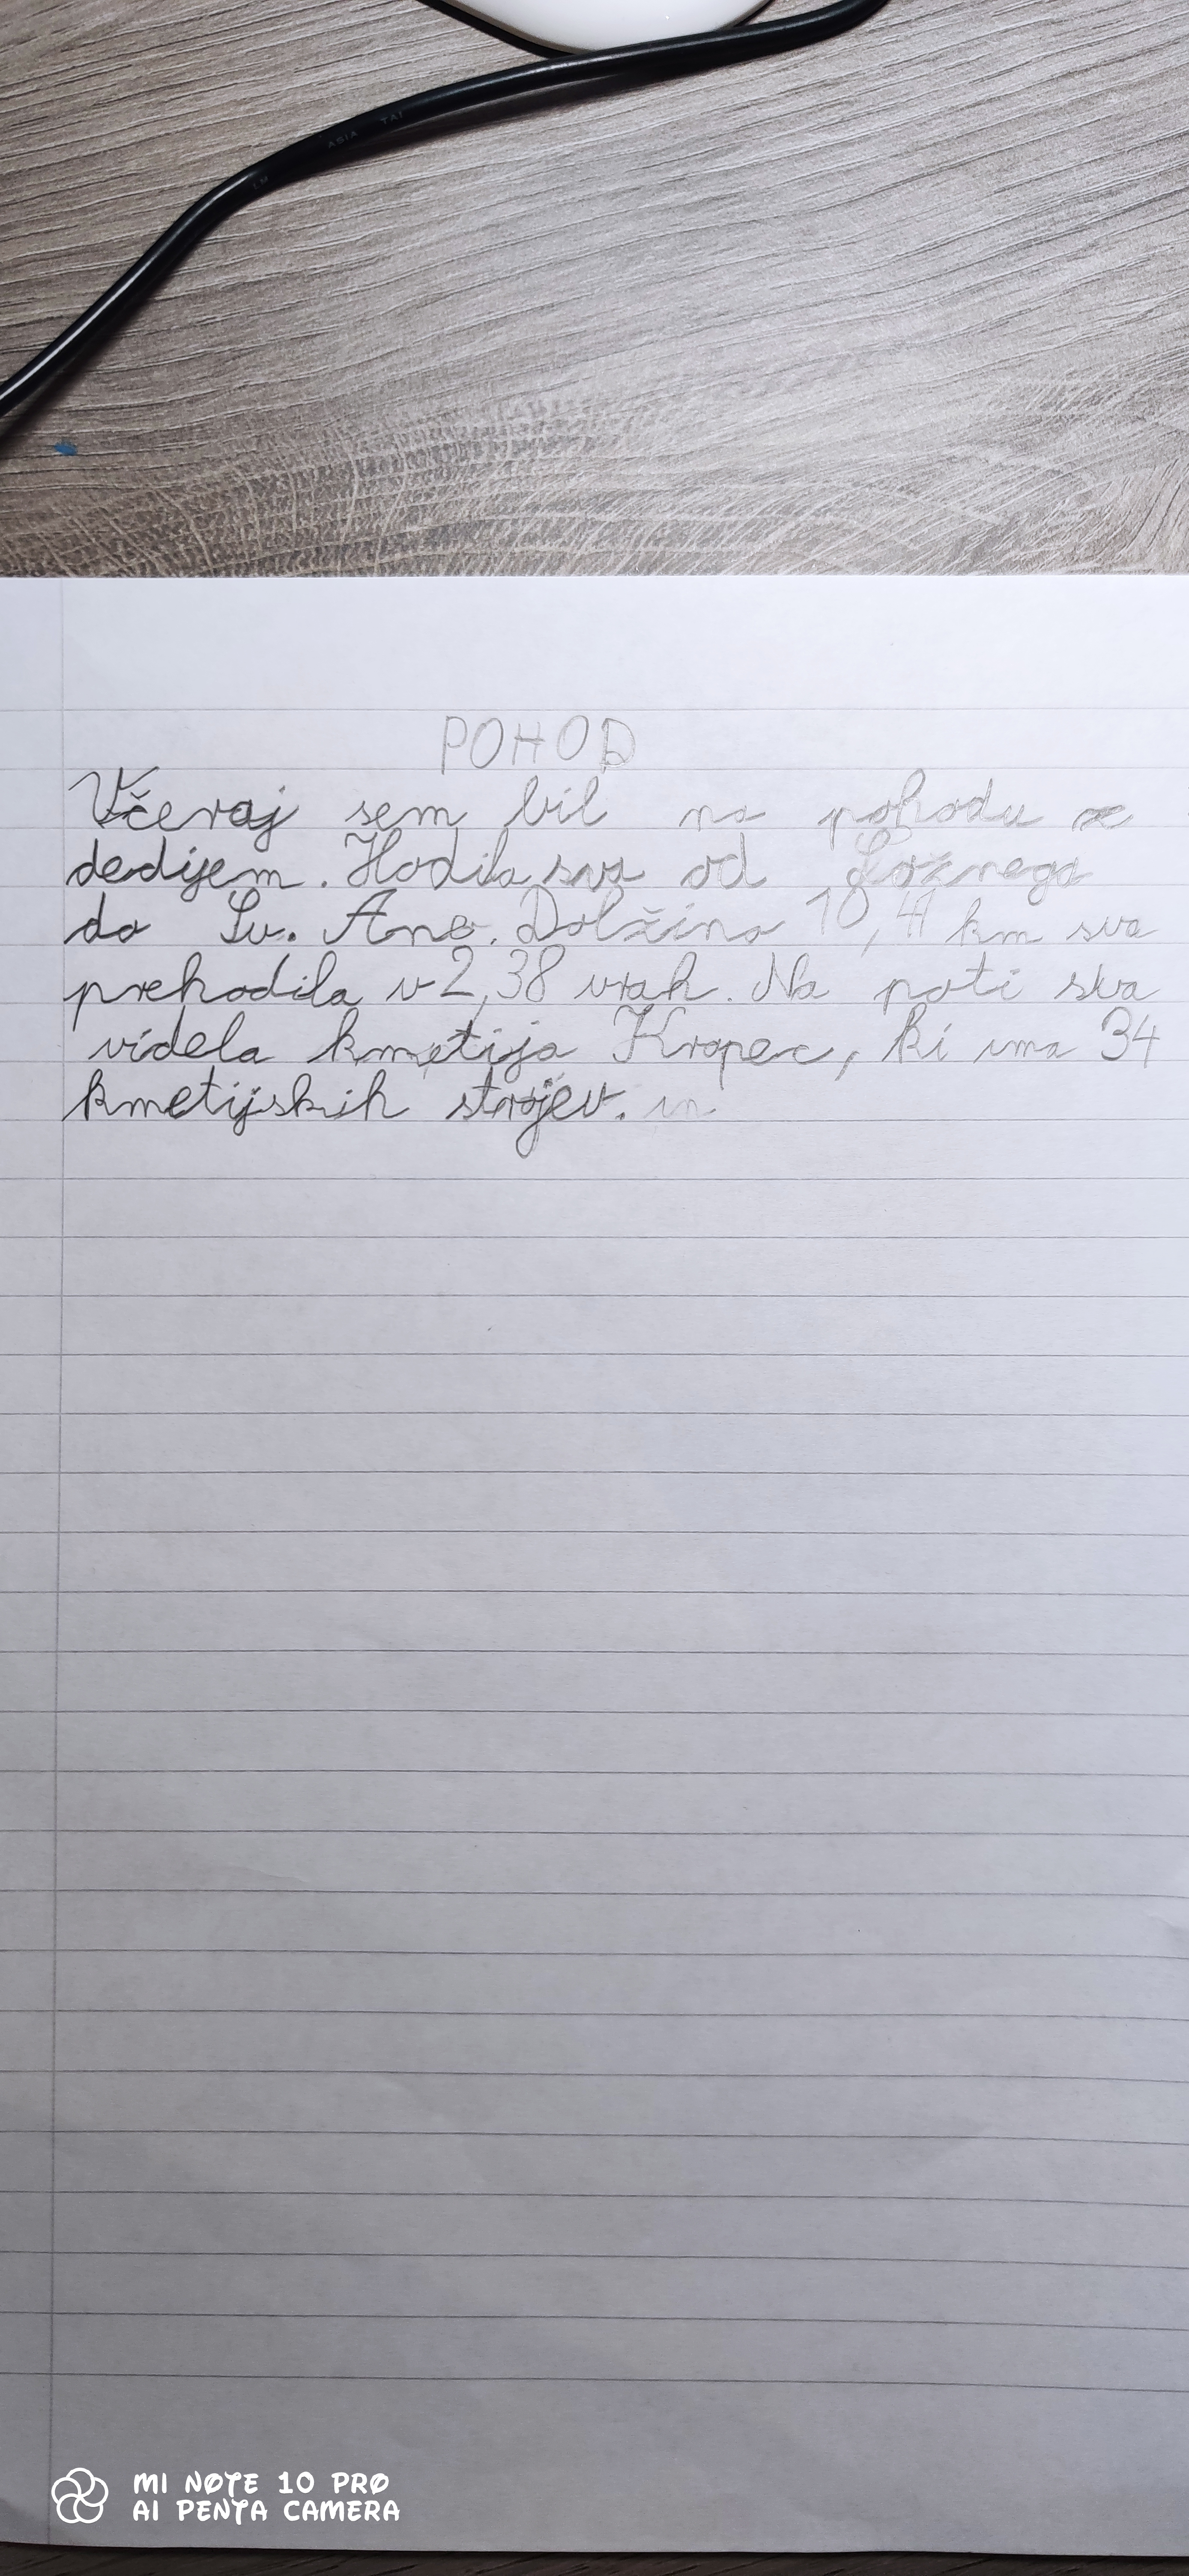 ASIA TAI
POHOD
Včeraj sem bil na pohodu z
dedijem. Hodila sva od Ložnega
do Sv. Ane. Dolžino 10,41 km sva
prehodila v 2,38 urah. Na poti sva
videla kmetijo Kropec, ki ima 34
kmetijskih strojev. in
MI NOTE 10 PRO
AI PENTA CAMERA